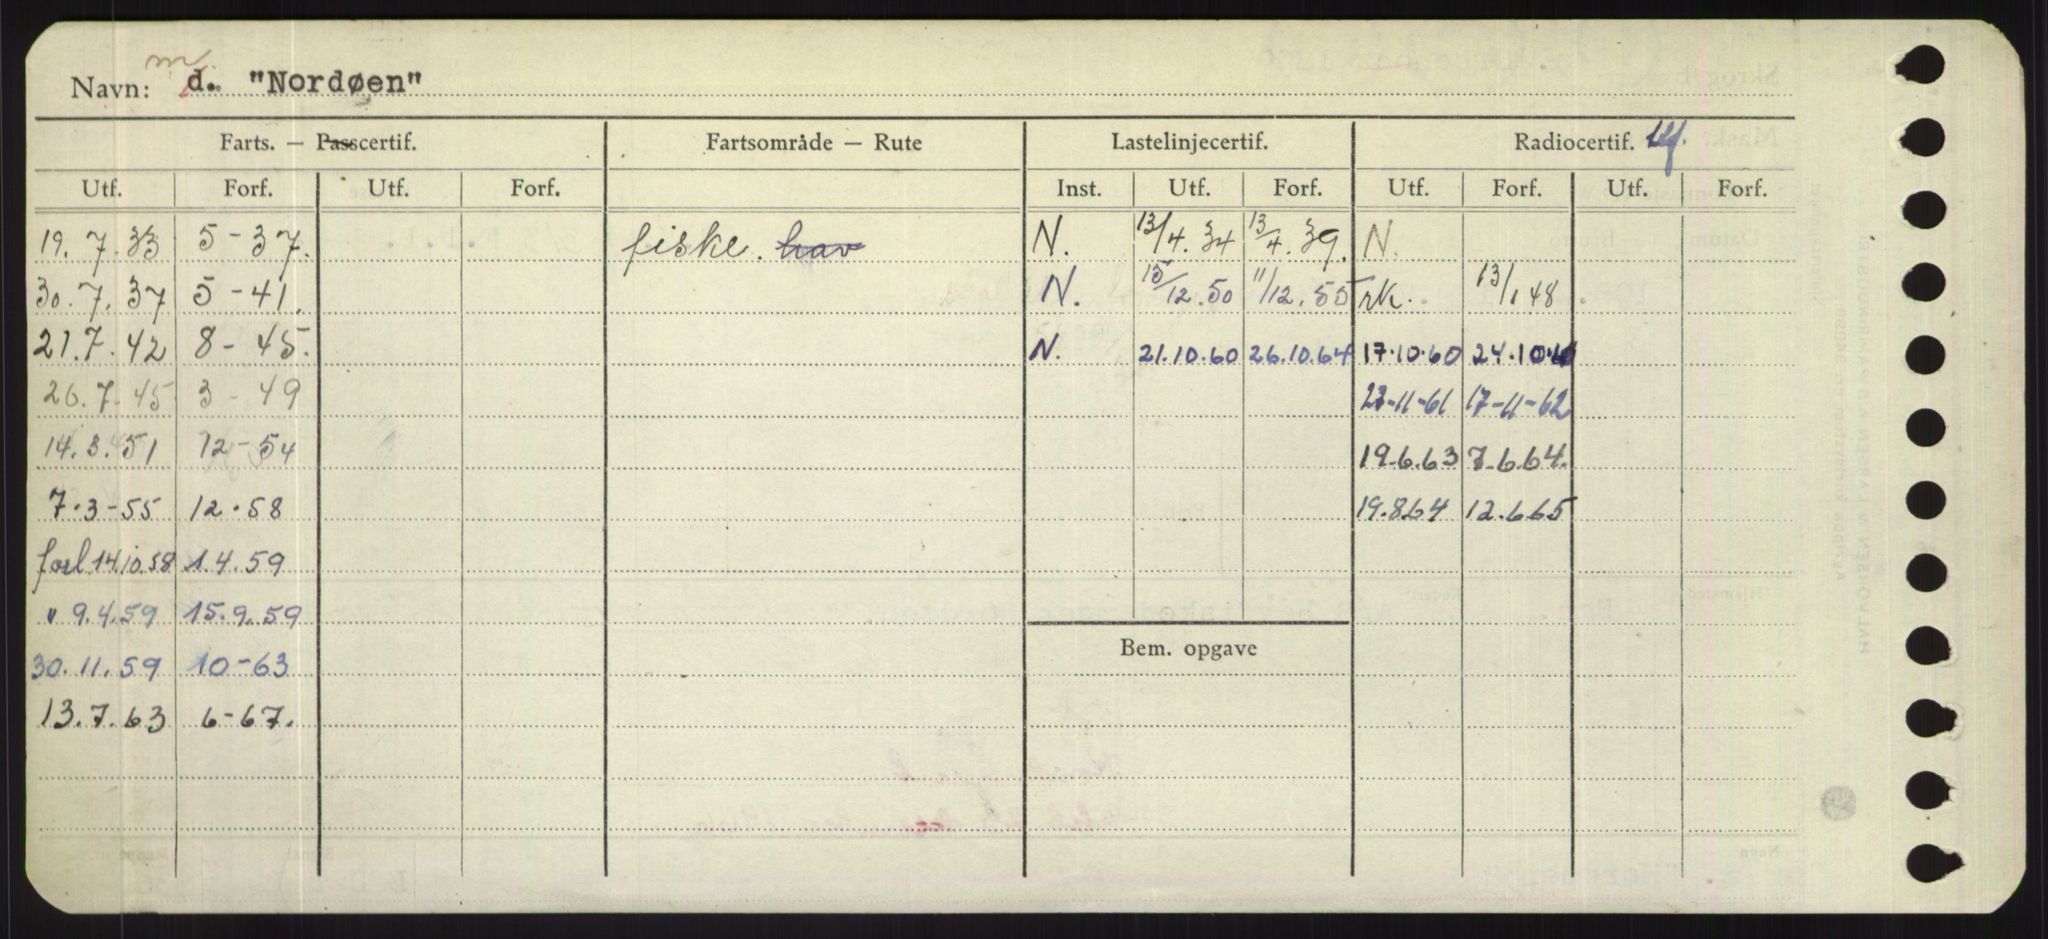 m
Navn: d. "Nordøen"
Farts. — Passcertif. Fartsområde — Rute Lastelinjecertif. Radiocertif. tlf.
Utf. Forf. Utf. Forf. Inst. Utf. Forf. Utf. Forf. Utf. Forf.
19.7.33 5-37. fiske. hav N. 13/4.34 13/4.39. N.
30.7.37 5-41. N. 15/12.50 11/12.55 rk. 13/1 48
21.7.42 8-45. N. 21.10.60 26.10.64 17.10.60 24.10.
26.7.45 3-49 -11-61 17-11-62
14.3.51 12-54 19.6.63 7.6.64.
7.3-55 12.58 19.8.64 12.6.65
forl 14.10.58 1.4.59
" 9.4.59 15.9.59
30.11.59 10-63 Bem. opgave
13.7.63 6-67.